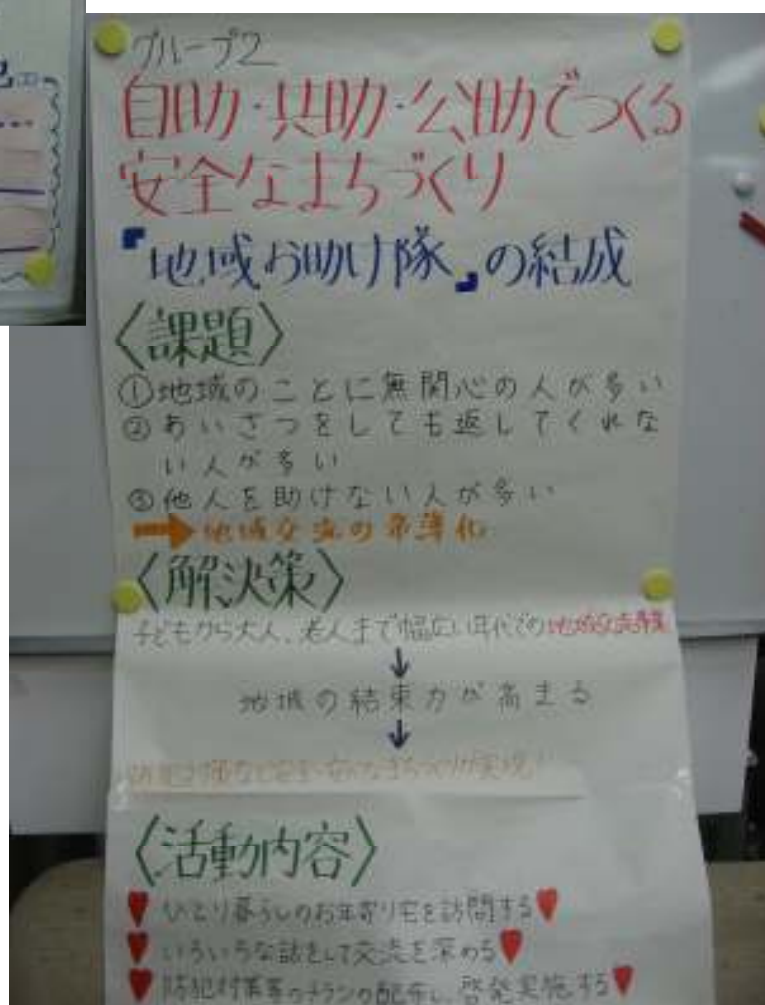 グループ2
自助・共助・公助でつくる
安全なまちづくり
『地域お助け隊』の結成
〈課題〉
①地域のことに無関心の人が多い
②あいさつをしても返してくれな
い人が多い
③他人を助けない人が多い
➡地域交流の希薄化
〈解決策〉
子どもから大人、老人まで幅広い年代での地域交流事業
↓
地域の結束力が高まる
↓
安全・安心なまちづくりが実現!
〈活動内容〉
♥ひとり暮らしのお年寄り宅を訪問する♥
♥いろいろな話をして交流を深める♥
♥防犯対策等のチラシの配布し、啓発実施する♥